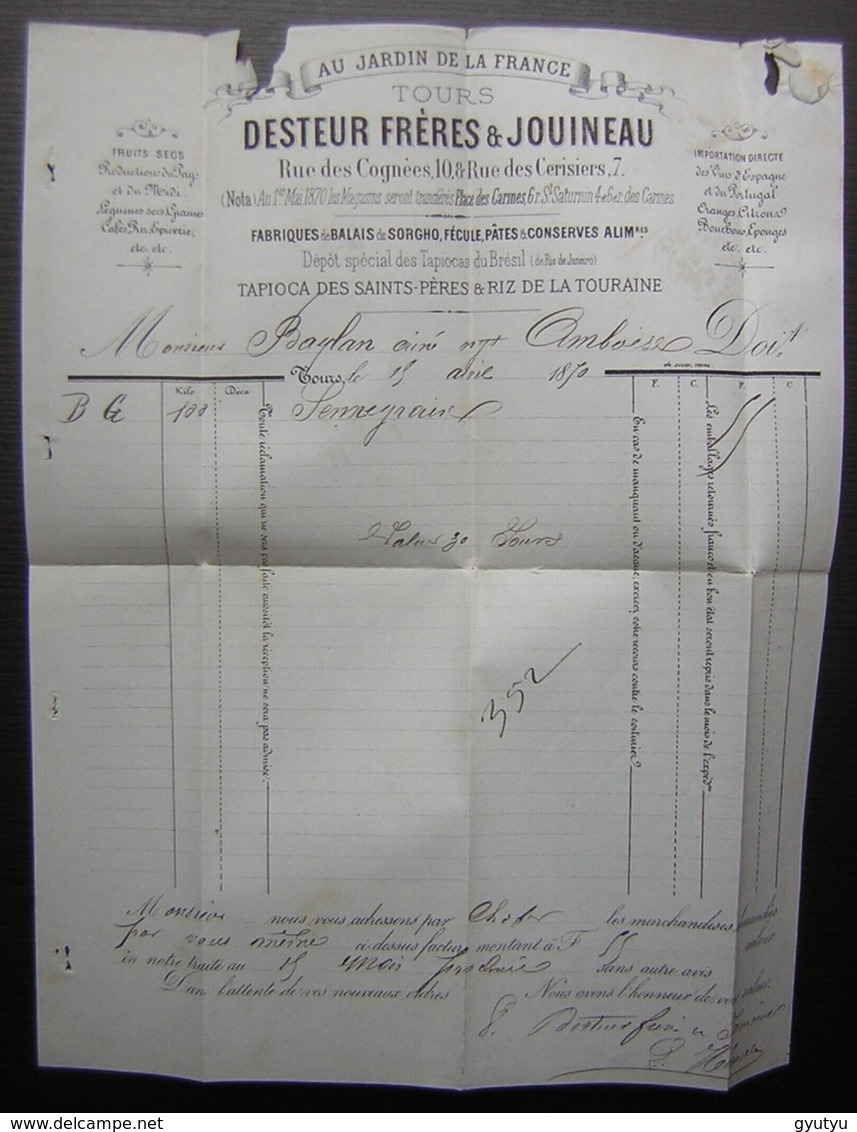 AU JARDIN DE LA FRANCE
TOURS
DESTEUR FRÈRES & JOUINEAU
Rue des Cognées, 10, & Rue des Cerisiers, 7.
(Nota) Au 1er Mai 1870 les Magasins seront transférés Place des Carmes, 6 r. St Saturnin 4 et 6 r. des Carmes
FABRIQUES de BALAIS de SORGHO, FÉCULE, PÂTES & CONSERVES ALIMRES
Dépôt spécial des Tapiocas du Brésil (de Rio de Janeiro)
TAPIOCA DES SAINTS-PÈRES & RIZ DE LA TOURAINE
FRUITS SECS
Production du Pays
et du Midi.
Légumes secs, Graines
Cafés, Riz, Epicerie,
etc. etc.
IMPORTATION DIRECTE
des Vins d'Espagne
et du Portugal
Oranges, Citrons
Bouchons, Eponges
etc. etc.
Monsieur Baylan ainé ngt Amboise Doit
Tours, le 15 avril 1870
Kilo Déca F. C. F. C.
B G 100 Sennegrain 55
Toute réclamation qui ne sera pas faite aussitôt la réception ne sera pas admise.
En cas de manquant ou d'avarie, exercez votre recours contre le voiturier
Les emballages retournés franco et en bon état seront repris dans le mois de l'expédon
Valeur 30 Jours
352
Monsieur nous vous adressons par les marchandises demandées
par vous même ci-dessus facture montant à F 55 valeur
en notre traite au 15 Mai prochain sans autre avis
Dans l'attente de vos nouveaux ordres Nous avons l'honneur de vous saluer.
Pr Desteur frères et Jouineau
gyutyu